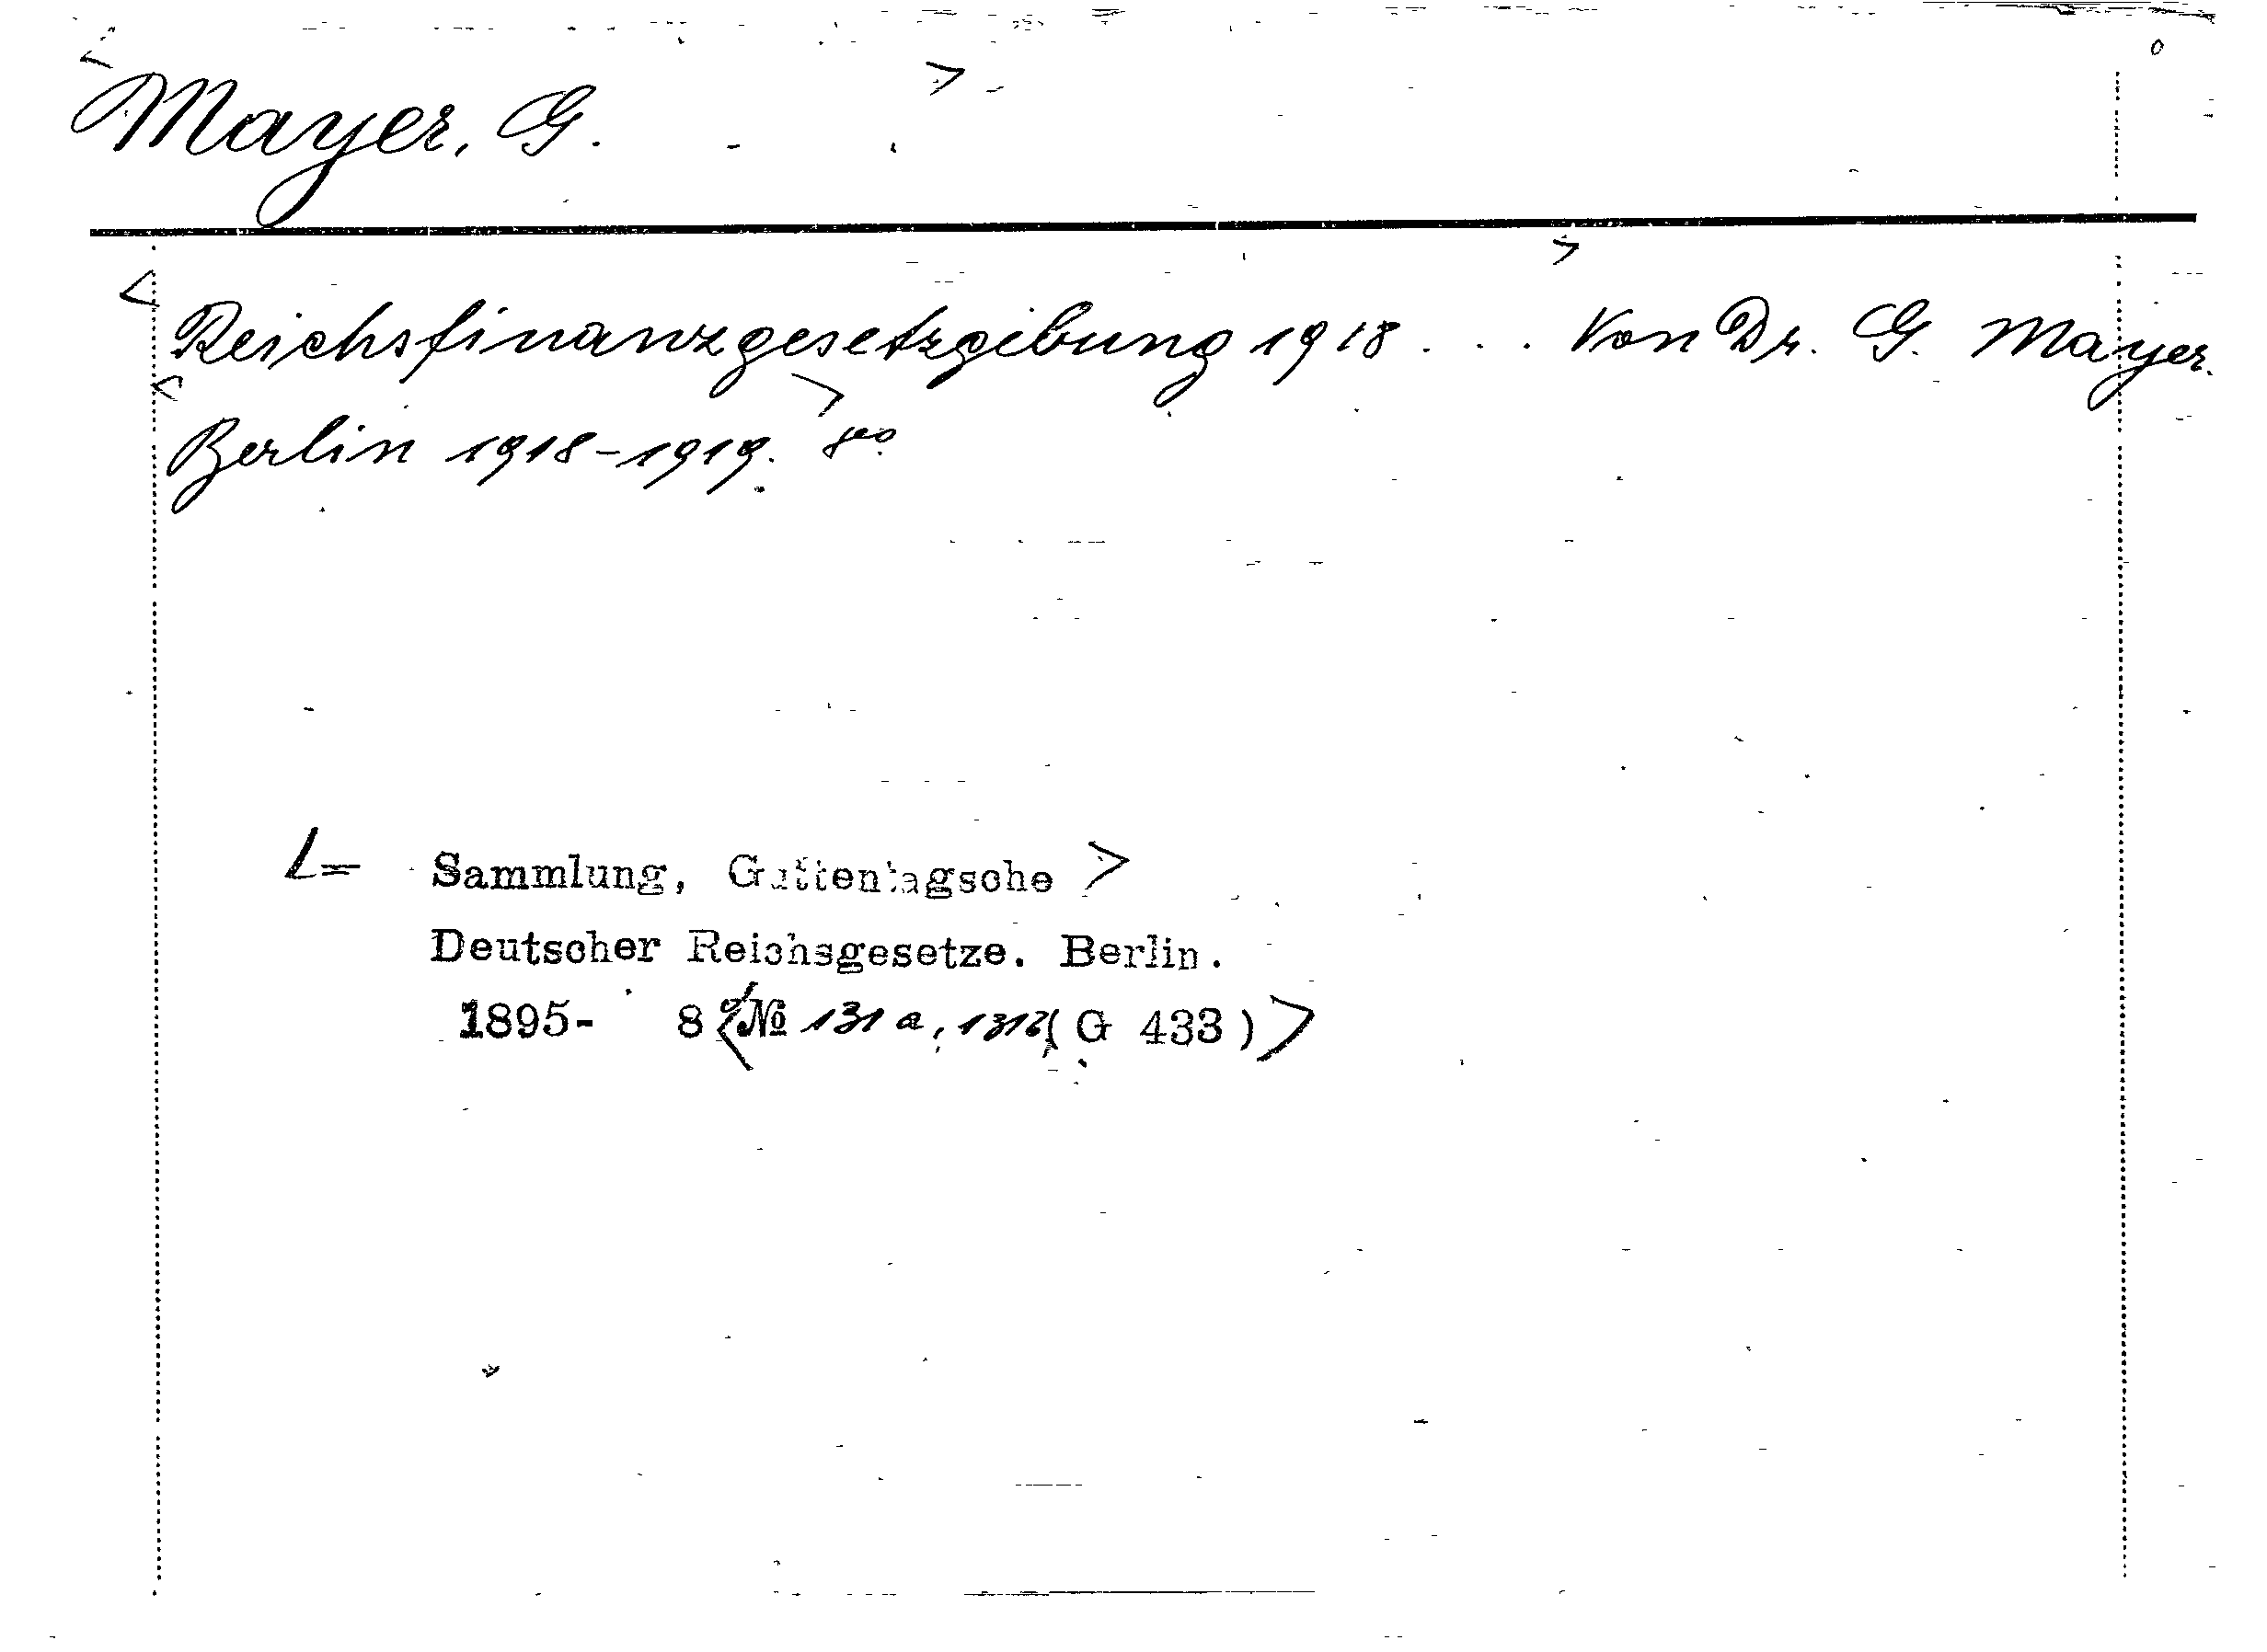 Mayer, G.
Reichsfinanzgesetzgebung 1918 ... Von Dr. G. Mayer.
Berlin 1918-1919. 8°.
= Sammlung, Guttentagsche
Deutscher Reichsgesetze. Berlin.
1895- 8° № 131a, 131b (G 433)